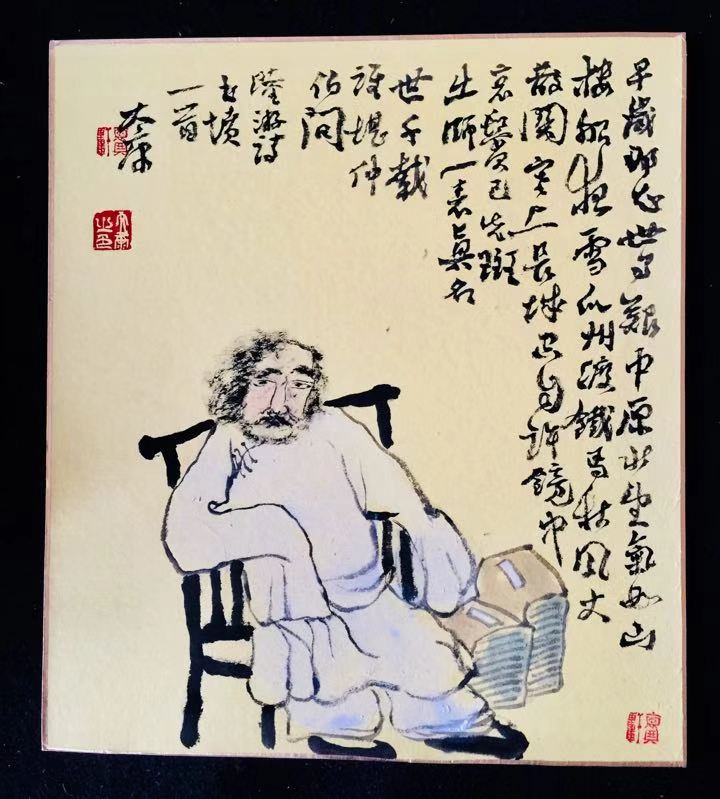 早歲那知世事艱中原北望氣如山
樓船夜雪瓜州渡鐵馬秋風大
散關塞上長城空自許鏡中
衰鬢已先斑
出師一表真名
世千載
誰堪仲
伯間
陸游詩
書憤
一首
大康